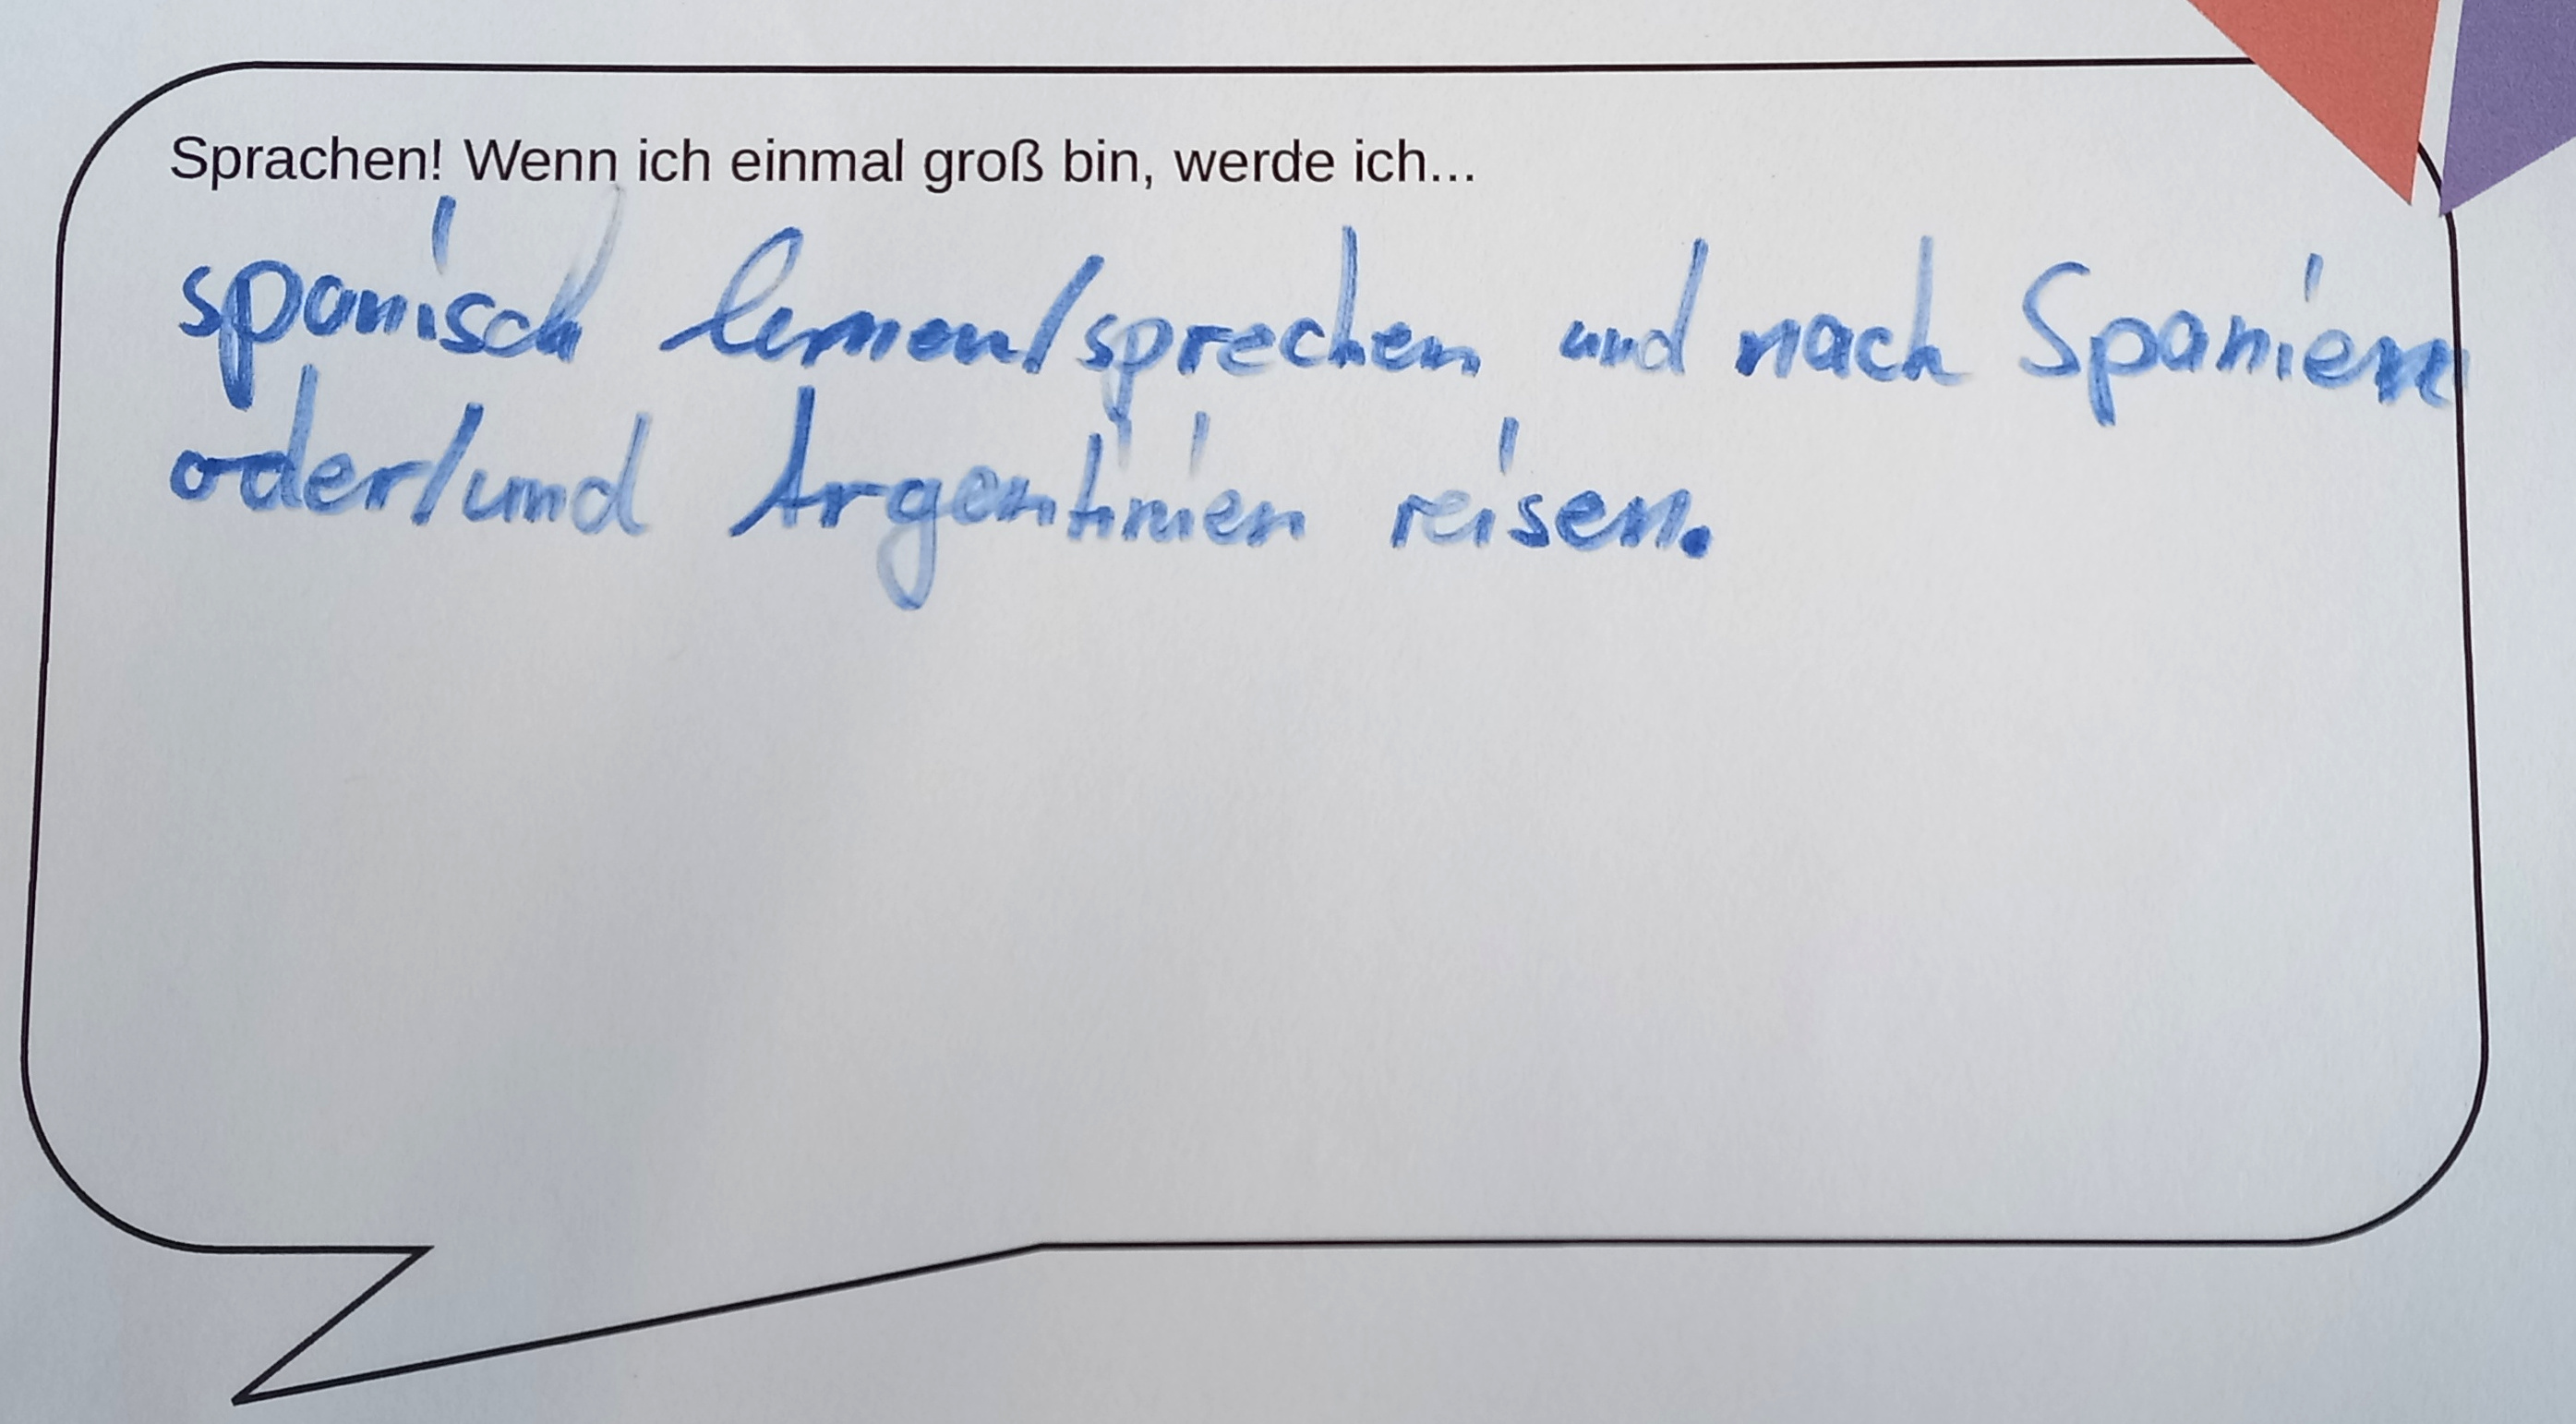 Sprachen! Wenn ich einmal groß bin, werde ich...
spanisch lernen/sprechen und nach Spanien
oder/und Argentinien reisen.